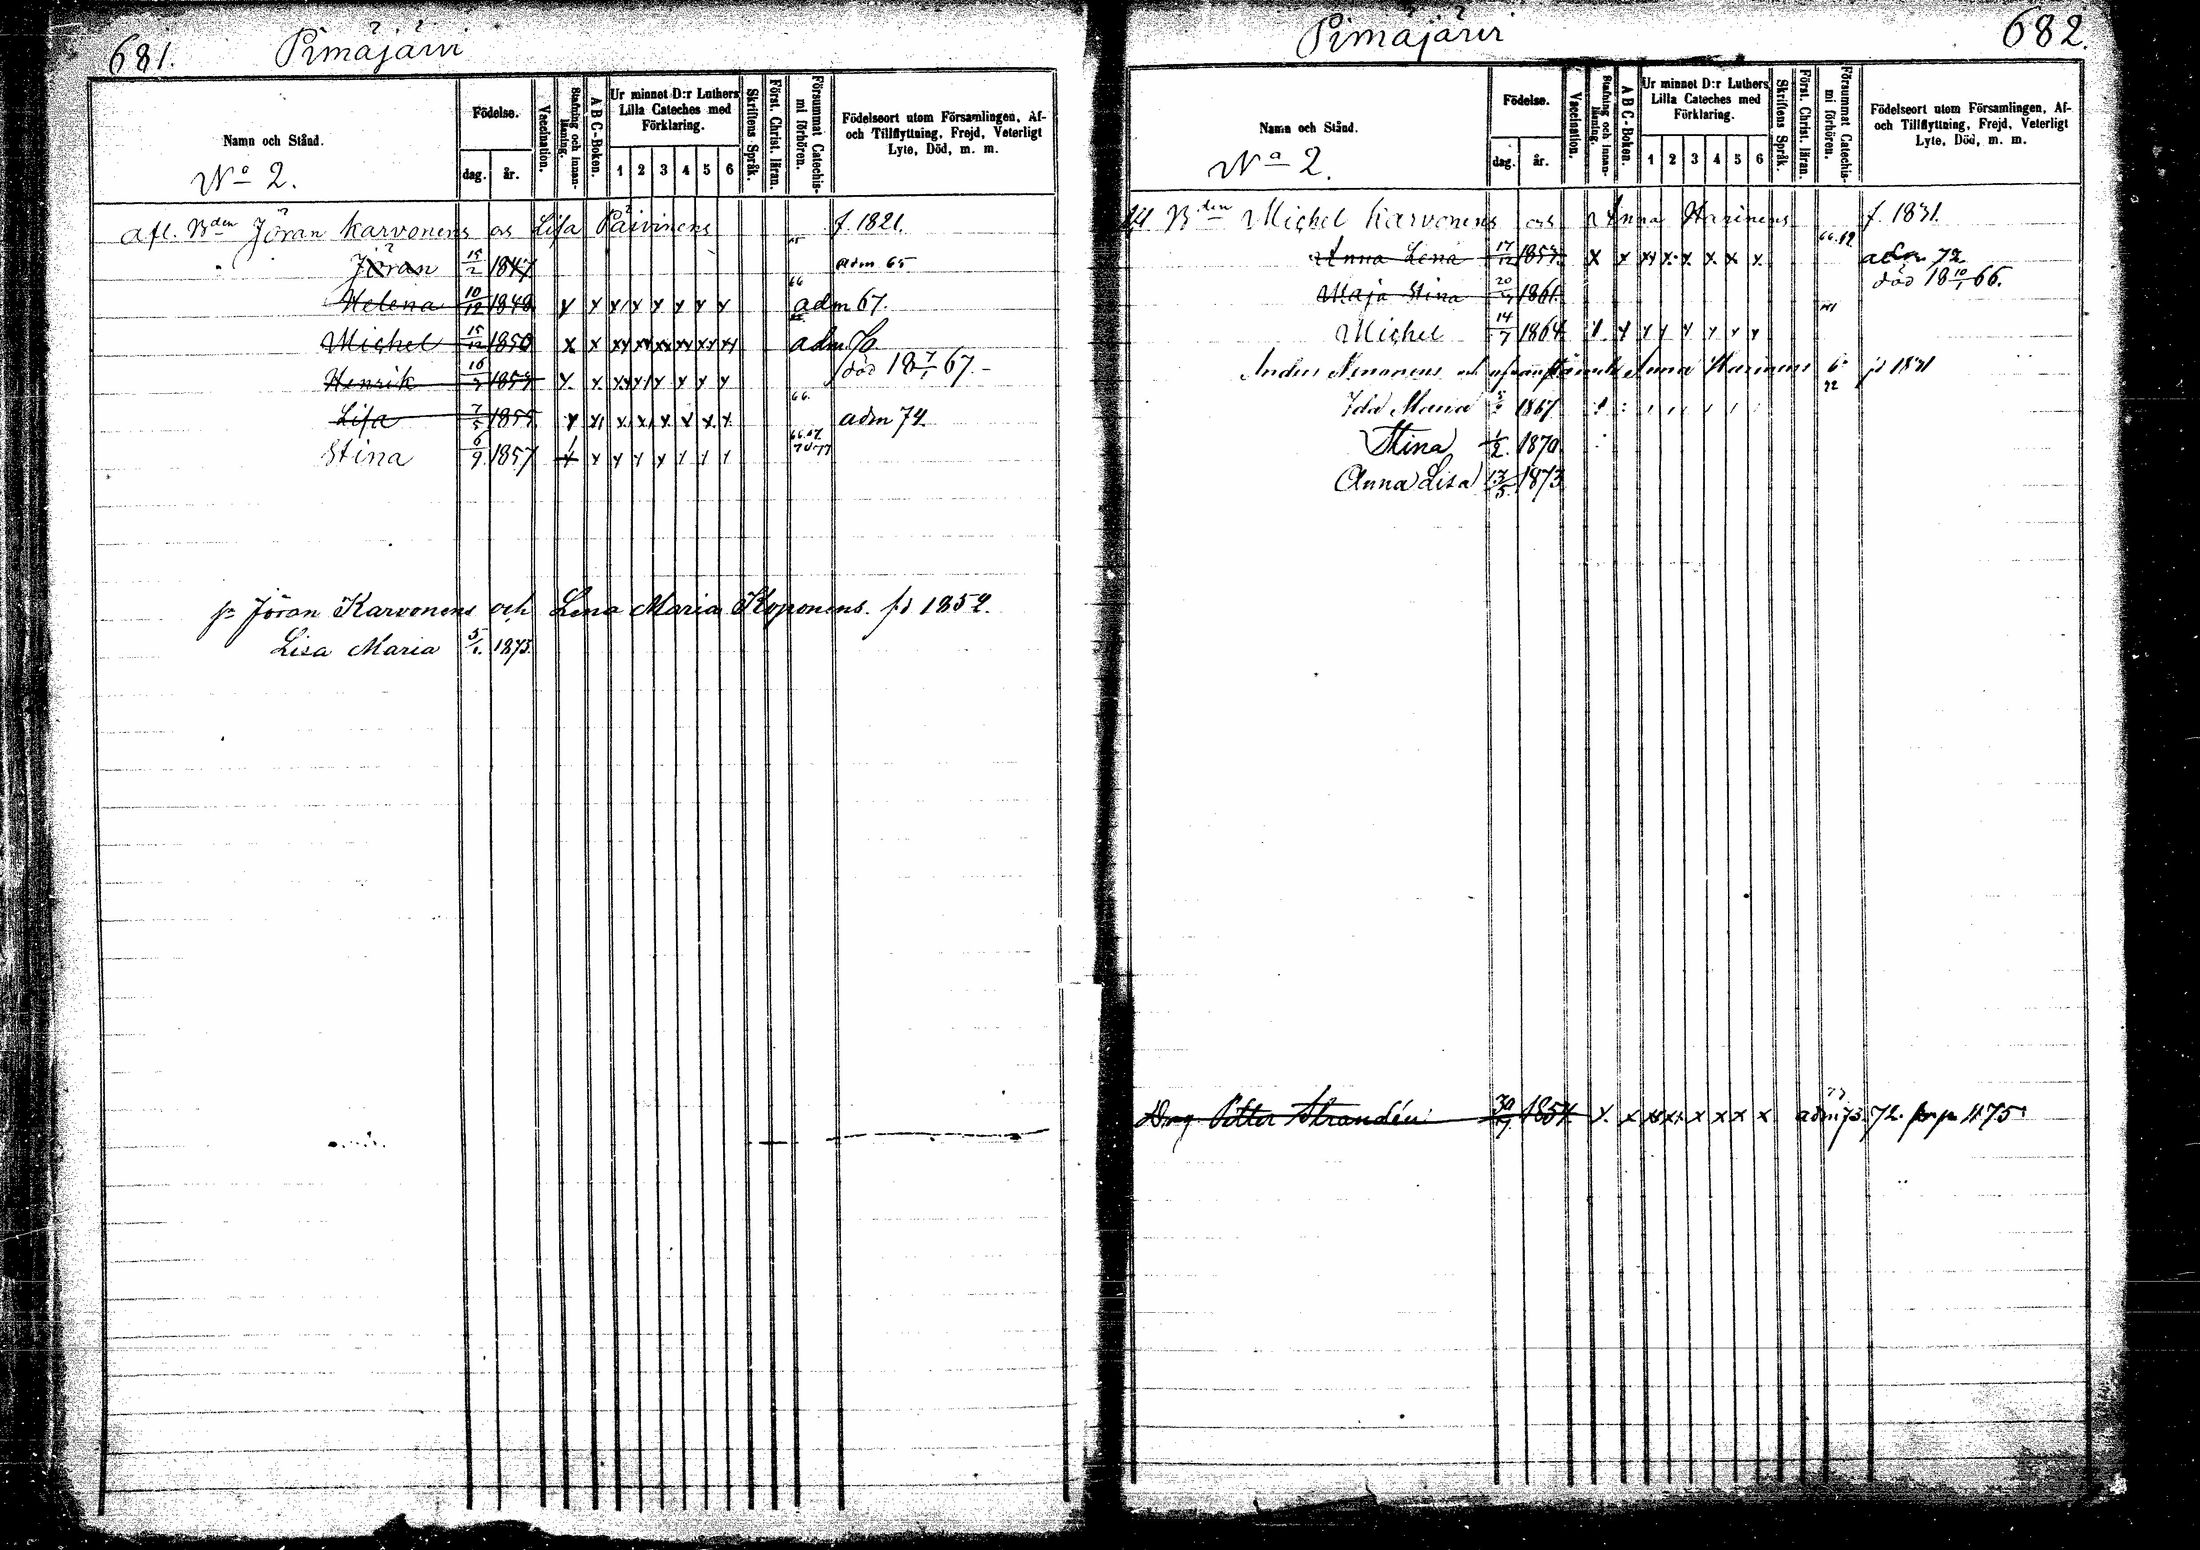 681. Pimäjärvi
Namn och Stånd.
Födelse.
dag. år.
Vaccination.
Stafning och innan-läsning.
A B C-Boken.
Ur minnet D:r Luthers Lilla Cateches med Förklaring.
1 2 3 4 5 6
Skriftens Språk.
Först. Christ. läran.
Försummat Catechis-mi förhören.
Födelseort utom Församlingen, Af-
och Tillflyttning, Frejd, Veterligt
Lyte, Död, m. m.
No 2.
afl. Bden Jöran Karvonens as Lisa Päivinens f. 1821.
Jöran 15/2 1847 adm 65
Helena 10/12 1848 x x x x x x x x 66 adm 67.
Michel 15/12 1850 x x xx xx xx xx xx xx adm 70
Henrik 16 1853 x x x x x x x x död 18 7/1 67.
Lisa 7/5 1855 x x x x x x x x 66. adm 74
Stina 6/9 1857 x x x x x x x x 66.67
Jöran Karvonens och Lena Maria Koponens fd 1852.
Lisa Maria 5/1. 1875.
Pimäjärvi 682.
Namn och Stånd.
Födelse.
dag. år.
Vaccination.
Stafning och innan-läsning.
A B C-Boken.
Ur minnet D:r Luthers Lilla Cateches med Förklaring.
1 2 3 4 5 6
Skriftens Språk.
Först. Christ. läran.
Försummat Catechis-mi förhören.
Födelseort utom Församlingen, Af-
och Tillflyttning, Frejd, Veterligt
Lyte, Död, m. m.
No 2.
afl. Bden Michel Karvonens as Anna Harinens f. 1831.
Anna Lena 17/12 1857 x x xx x x x x x adm 72
Maja Stina 20 1861. död 18 10/1 66.
Michel 14/7 1864
Anders Nenonens och Anna Harinens fd 1831
Ida Maria 1867
Stina 1/2. 1870.
Anna Lisa 13/5 1873
Drg Petter Strandén 1854 x. x xx xx x x x x adm 73. 72. 75